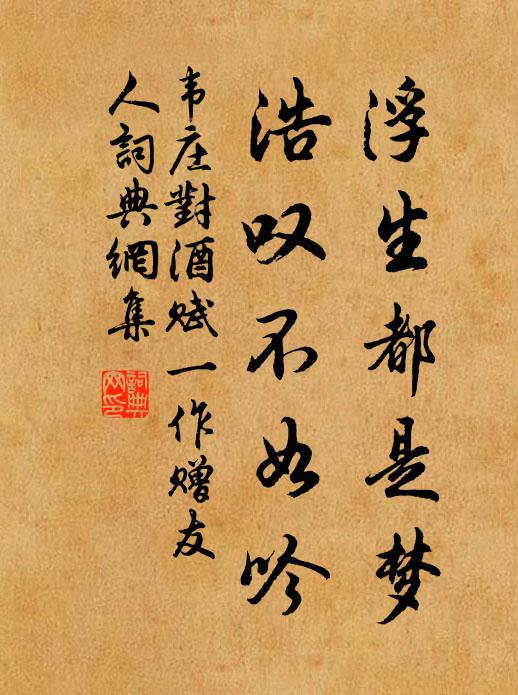 浮生都是梦
浩叹不如吟
韦庄對酒赋一作赠友
人詞典網集
詞典
网印